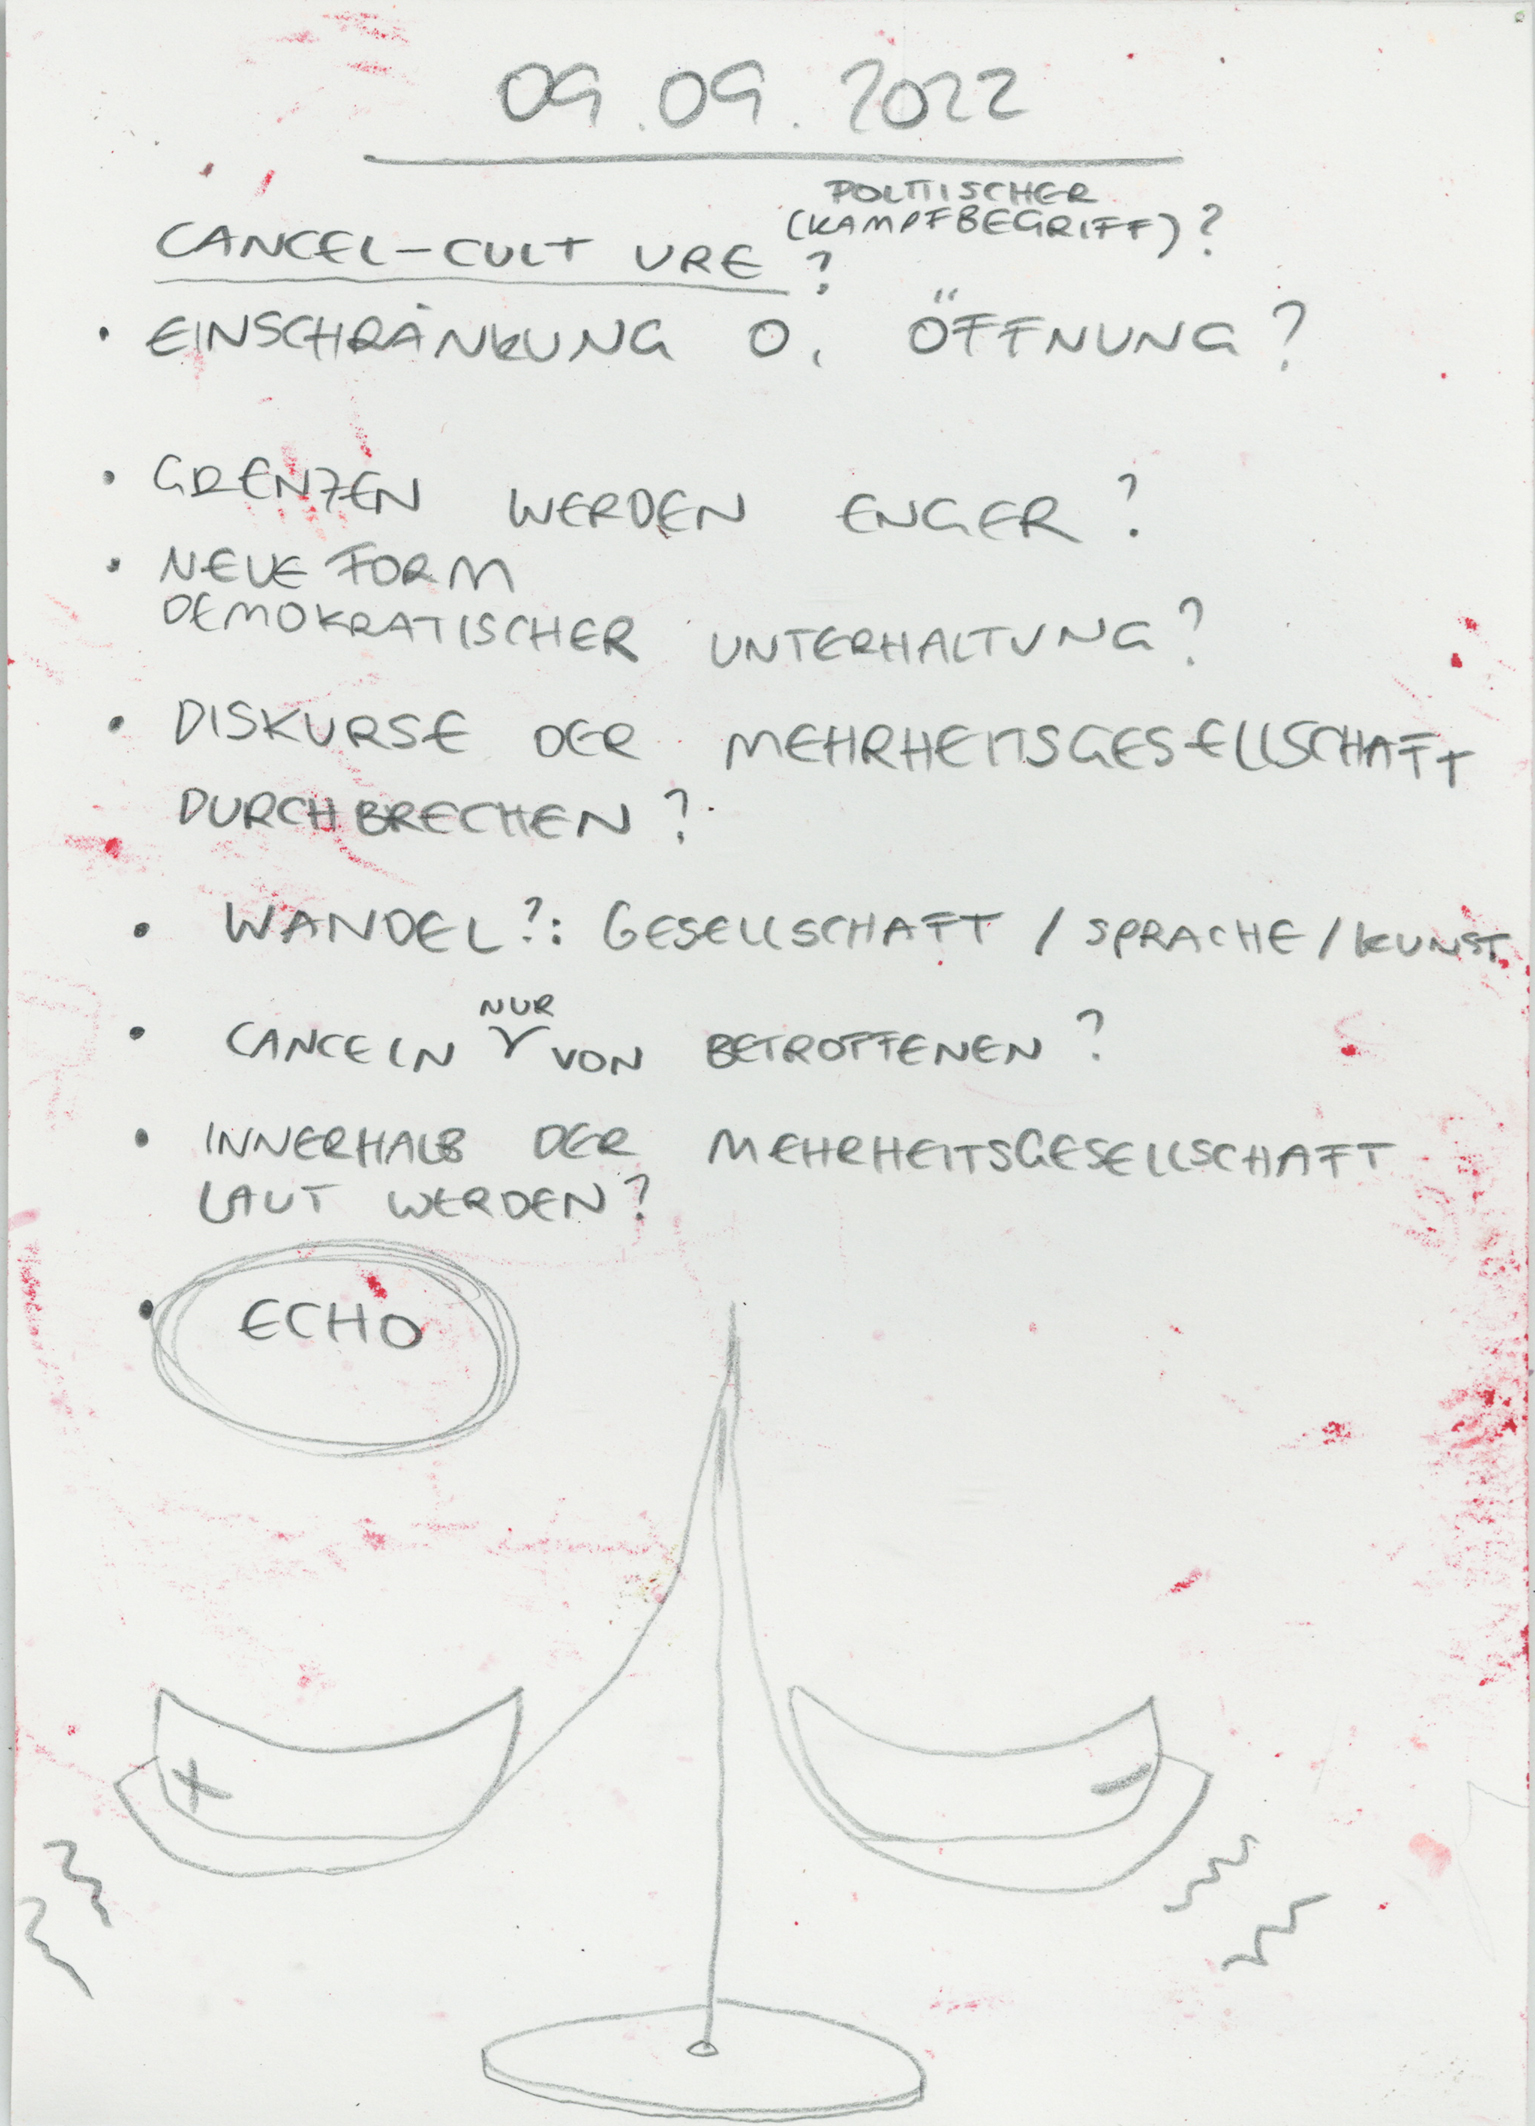 09.09.2022
POLITISCHER
(KAMPFBEGRIFF)?
CANCEL-CULTURE?
• EINSCHRÄNKUNG O. ÖFFNUNG?
• GRENZEN WERDEN ENGER?
• NEUE FORM
DEMOKRATISCHER UNTERHALTUNG?
• DISKURSE DER MEHRHEITSGESELLSCHAFT
DURCHBRECHEN?
• WANDEL?: GESELLSCHAFT / SPRACHE / KUNST
• CANCELN NUR VON BETROFFENEN?
• INNERHALB DER MEHRHEITSGESELLSCHAFT
LAUT WERDEN?
• ECHO